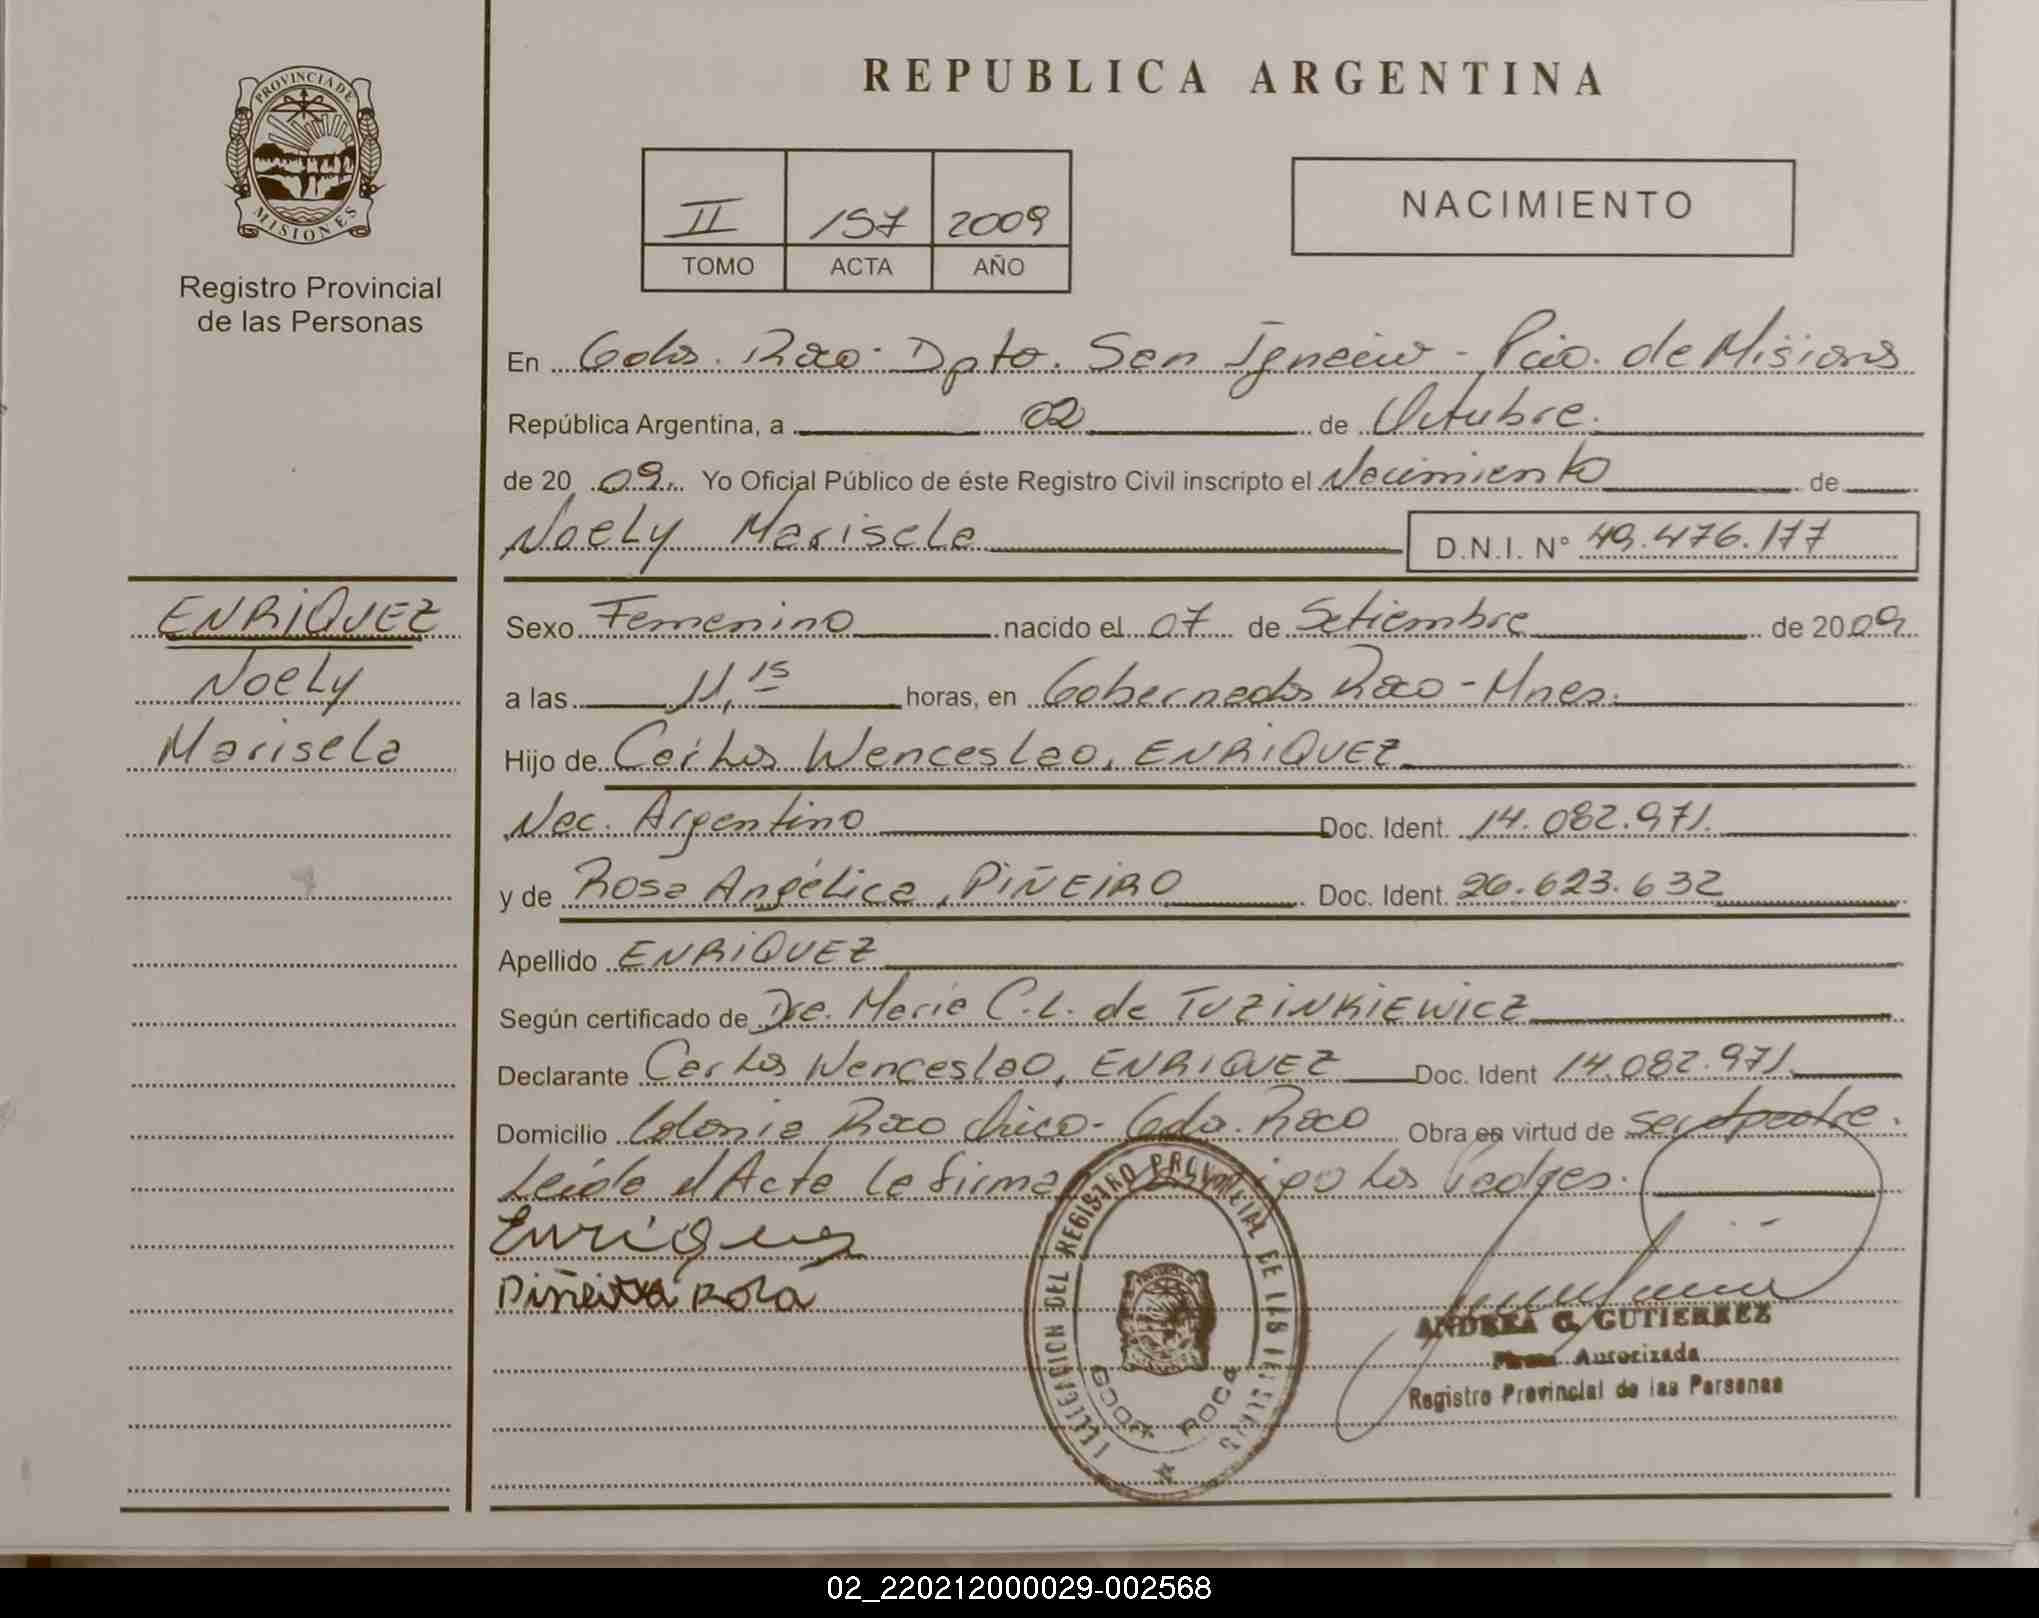 PROVINCIA DE
MISIONES
Registro Provincial
de las Personas
REPUBLICA ARGENTINA
II 157 2009
TOMO ACTA AÑO
NACIMIENTO
En Gdor. Roca - Dpto. San Ignacio - Pcia. de Misiones
República Argentina, a 02 de Octubre.
de 2009. Yo Oficial Público de éste Registro Civil inscripto el Nacimiento de
Noely Marisela D.N.I. N° 49.476.177
ENRIQUEZ
Noely
Marisela
Sexo Femenino nacido el 07 de Setiembre de 2009
a las 11,15 horas, en Gobernador Roca - Mnes.
Hijo de Carlos Wenceslao, ENRIQUEZ
Nac. Argentino Doc. Ident. 14.082.971.
y de Rosa Angélica, PIÑEIRO Doc. Ident. 26.623.632
Apellido ENRIQUEZ
Según certificado de Dra. Maria C.L. de TUZINKIEWICZ
Declarante Carlos Wenceslao, ENRIQUEZ Doc. Ident 14.082.971.
Domicilio Colonia Roca Chico - Gdor. Roca Obra en virtud de ser el padre.
Leída el Acta la firma los Padres.
Enriquez
Piñeiro Rosa
DEL REGISTRO PROVINCIAL DE LAS
GDOR. ROCA
ANDREA G. GUTIERREZ
Firma Autorizada
Registro Provincial de las Personas
02_220212000029-002568